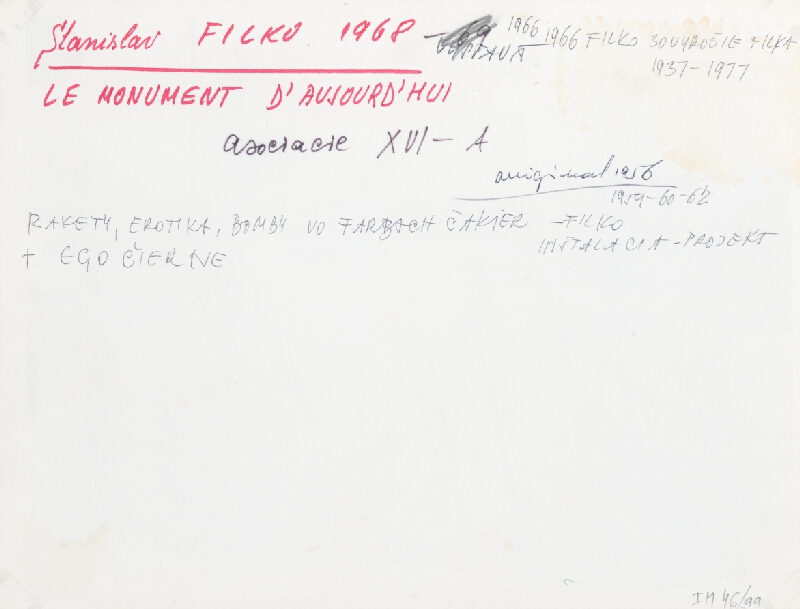 Stanislav FILKO 1968 – 69 1966 1966 FILKO 30 VÝROČIE FILKA
VÝSTAVA 1937–1977
LE MONUMENT D'AUJOURD'HUI
asociacie XVI – A
original 1956
1959-60-62
RAKETY, EROTIKA, BOMBY VO FARBÁCH ČAKIER – FILKO
INŠTALACIA – PROJEKT
+ EGO ČIERNE
IM 46/99